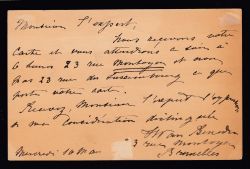 Monsieur l'expert,
Nous recevons votre
carte et vous attendrons ce soir à
6 heures 23 rue Montoyer et non
pas 23 rue du Luxembourg ce que
porte votre carte.
Recevez, Monsieur l'expert l'expression
de ma considération distinguée
Van Beneden
23 rue Montoyer
Bruxelles
Mercredi 10 Mai